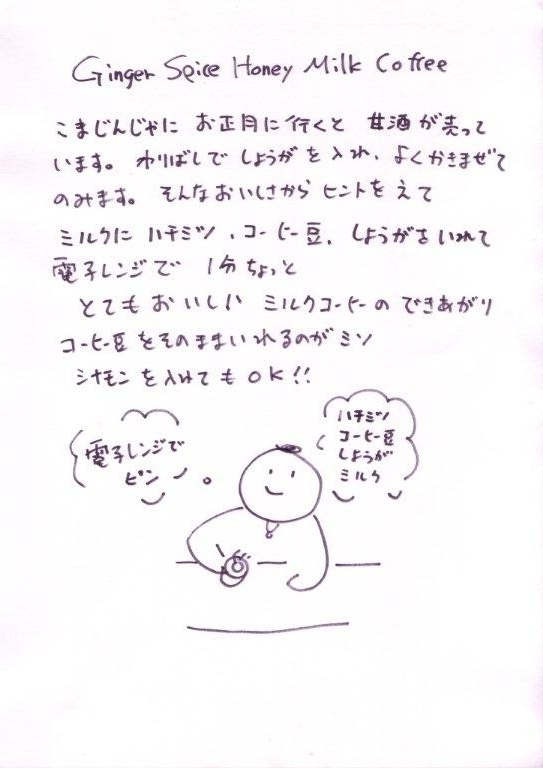 Ginger Spice Honey Milk Coffee
こまじんじゃに お正月に行くと 甘酒が売って
います。 わりばしで しょうがを入れ、よくかきまぜて
のみます。 そんなおいしさから ヒントをえて
ミルクに ハチミツ、コーヒー豆、しょうがをいれて
電子レンジで 1分ちょっと
とてもおいしい ミルクコーヒーの できあがり
コーヒー豆をそのままいれるのがミソ
シナモンを入れてもOK!!
電子レンジで
ピン
ハチミツ
コーヒー豆
しょうが
ミルク